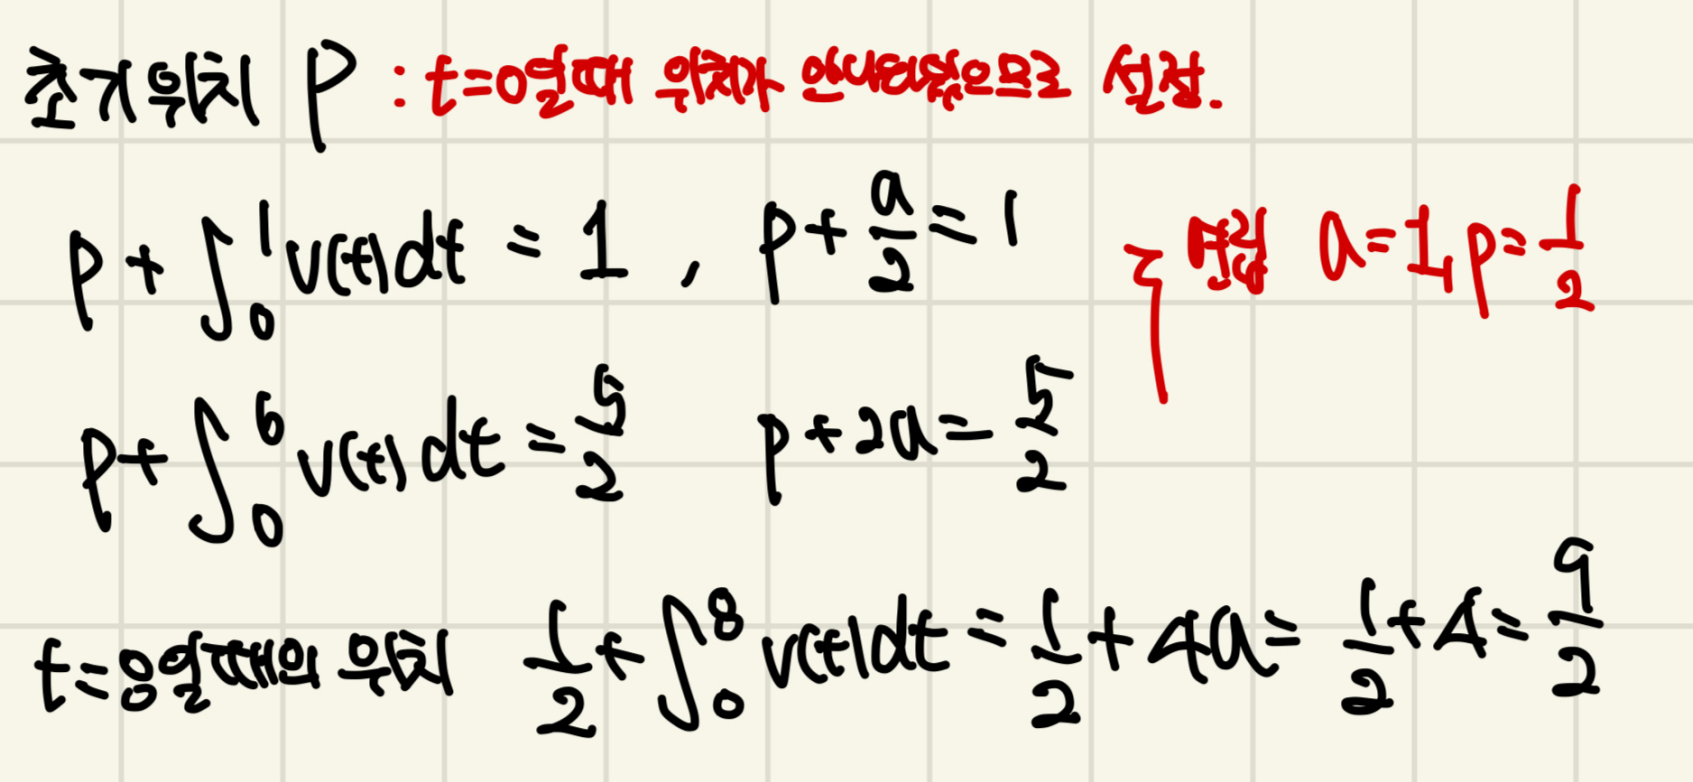 초기위치 P : t=0일때 위치가 안나와있으므로 설정.
p + ∫₀¹ v(t)dt = 1 , p + a/2 = 1 연립 a=1, p=1/2
p + ∫₀⁶ v(t)dt = 5/2 p + 2a = 5/2
t=8일때의 위치 1/2 + ∫₀⁸ v(t)dt = 1/2 + 4a = 1/2 + 4 = 9/2